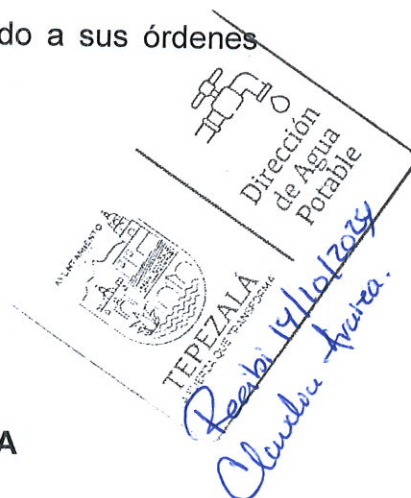 do a sus órdenes
Dirección
de Agua
Potable
AYUNTAMIENTO
TEPEZALÁ
QUE TRANSFORMA
Recibi 14/10/2024
Claudia
A